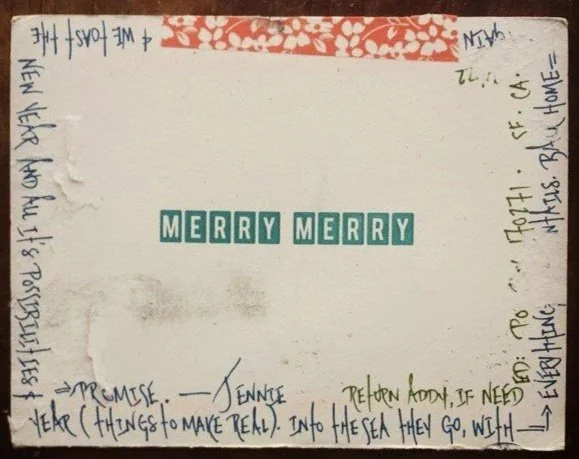 MERRY MERRY
YEAR (THINGS TO MAKE REAL). INTO THE SEA THEY GO, WITH —
⇒ EVERYTHING HOME=
& WE TOAST THE
NEW YEAR AND ALL IT'S POSSIBILITIES &
⇒ PROMISE. — JENNIE
RETURN ADDY, IF NEED
ED: PO 170171 · SF · CA ·